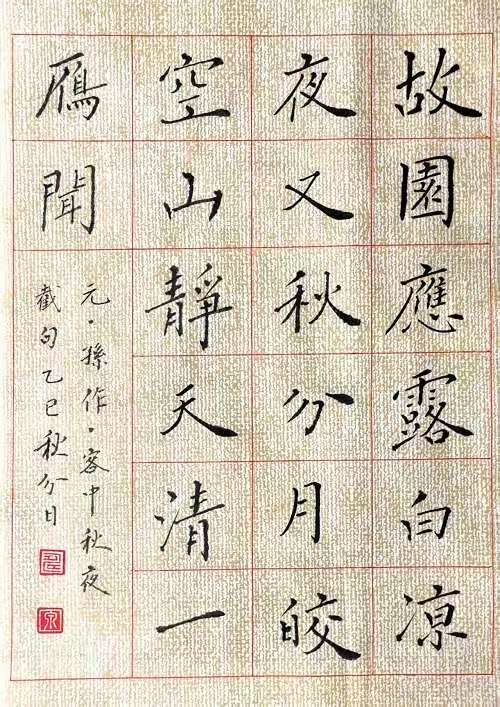 故園應露白凉
夜又秋分月皎
空山靜天清一
鴈聞
元·孫作·客中秋夜
截句乙巳秋分日